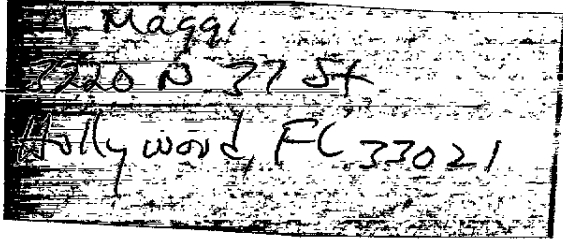 M. Maggi
3220 N 37 St
Hollywood, FL 33021